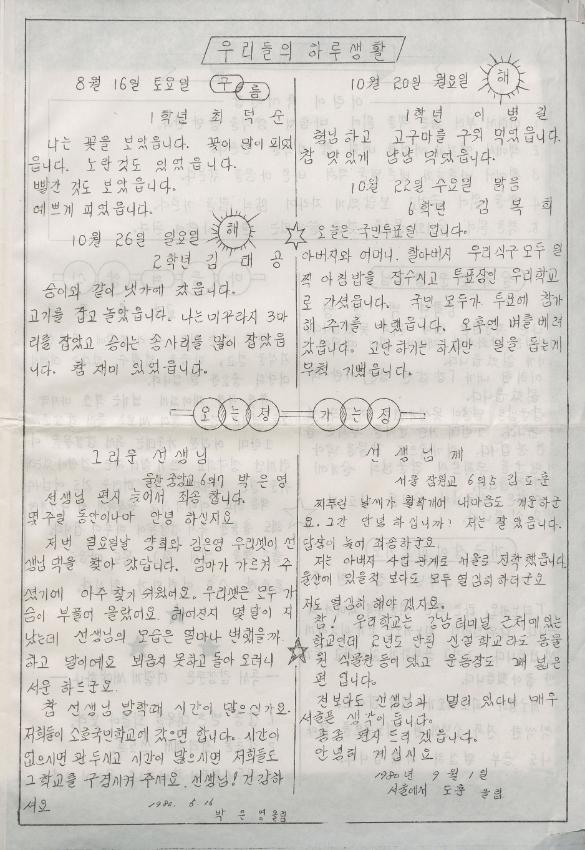 우리들의 하루생활
8월 16일 토요일 구름
1학년 최덕순
나는 꽃을 보았읍니다. 꽃이 많이 피었
읍니다. 노란것도 있었읍니다.
빨간 것도 보았읍니다.
예쁘게 피었읍니다.
10월 26일 월요일 해
2학년 김 태 공
승이와 같이 냇가에 갔읍니다.
고기를 잡고 놀았읍니다. 나는 미꾸라지 3마
리를 잡았고 승이는 송사리를 많이 잡았읍
니다. 참 재미 있었읍니다.
10월 20일 월요일 해
1학년 이 병 길
형님하고 고구마를 구워 먹었읍니다.
참 맛있게 냠냠 먹었읍니다.
10월 22일 수요일 맑음
6학년 김 복 희
오늘은 국민투표일 입니다.
아버지와 어머니, 할아버지 우리식구 모두 일
찍 아침밥을 잡수시고 투표장인 우리학교
로 가셨읍니다. 국민 모두가 투표에 참가
해 주기를 바랬읍니다. 오후엔 벼를 베러
갔읍니다. 고단하기는 하지만 일을 돕는게
무척 기뻤읍니다.
오는정 가는정
그리운 선생님
울산 중앙교 6의7 박은영
선생님 편지 늦어서 죄송 합니다.
몇주일 동안이나마 안녕 하신지요
저번 일요일날 강희와 김은영 우리셋이 선
생님댁을 찾아 갔답니다. 엄마가 가르켜 주
셨기에 아주 찾기 쉬웠어요. 우리셋은 모두 가
슴이 부풀어 올랐어요. 헤어진지 몇달이 지
났는데 선생님의 모습은 얼마나 변했을까
하고 말이예요 뵈옵지 못하고 돌아 오려니
서운 하드군요.
참 선생님 방학때 시간이 많으신가요.
저희들이 소호국민학교에 갔으면 합니다. 시간이
없으시면 관두시고 시간이 많으시면 저희들도
그학교를 구경시켜 주셔요. 선생님! 건강하
셔요 1980. 6. 16
박은영올림
선생님께
서울 잠원교 6의5 김도훈
찌푸린 날씨가 활짝개어 내마음도 개운하군
요. 그간 안녕 하십니까? 저는 잘 있읍니다.
답장이 늦어 죄송하군요.
저는 아버지 사업 관계로 서울로 전학했읍니다.
울산에 있을적 보다도 모두 열심히 하더군요
저도 열심히 해야 겠지요.
참! 우리학교는 강남터미널 근처에 있는
학교인데 2년도 안된 신설학교라도 동물
원 식물원 등이 있고 운동장도 꽤 넓은
편 입니다.
전보다도 선생님과 멀리 있다니 매우
서운한 생각이 듭니다.
종종 편지 드리 겠읍니다.
안녕히 계십시요
1980년 9월 1일
서울에서 도훈 올림